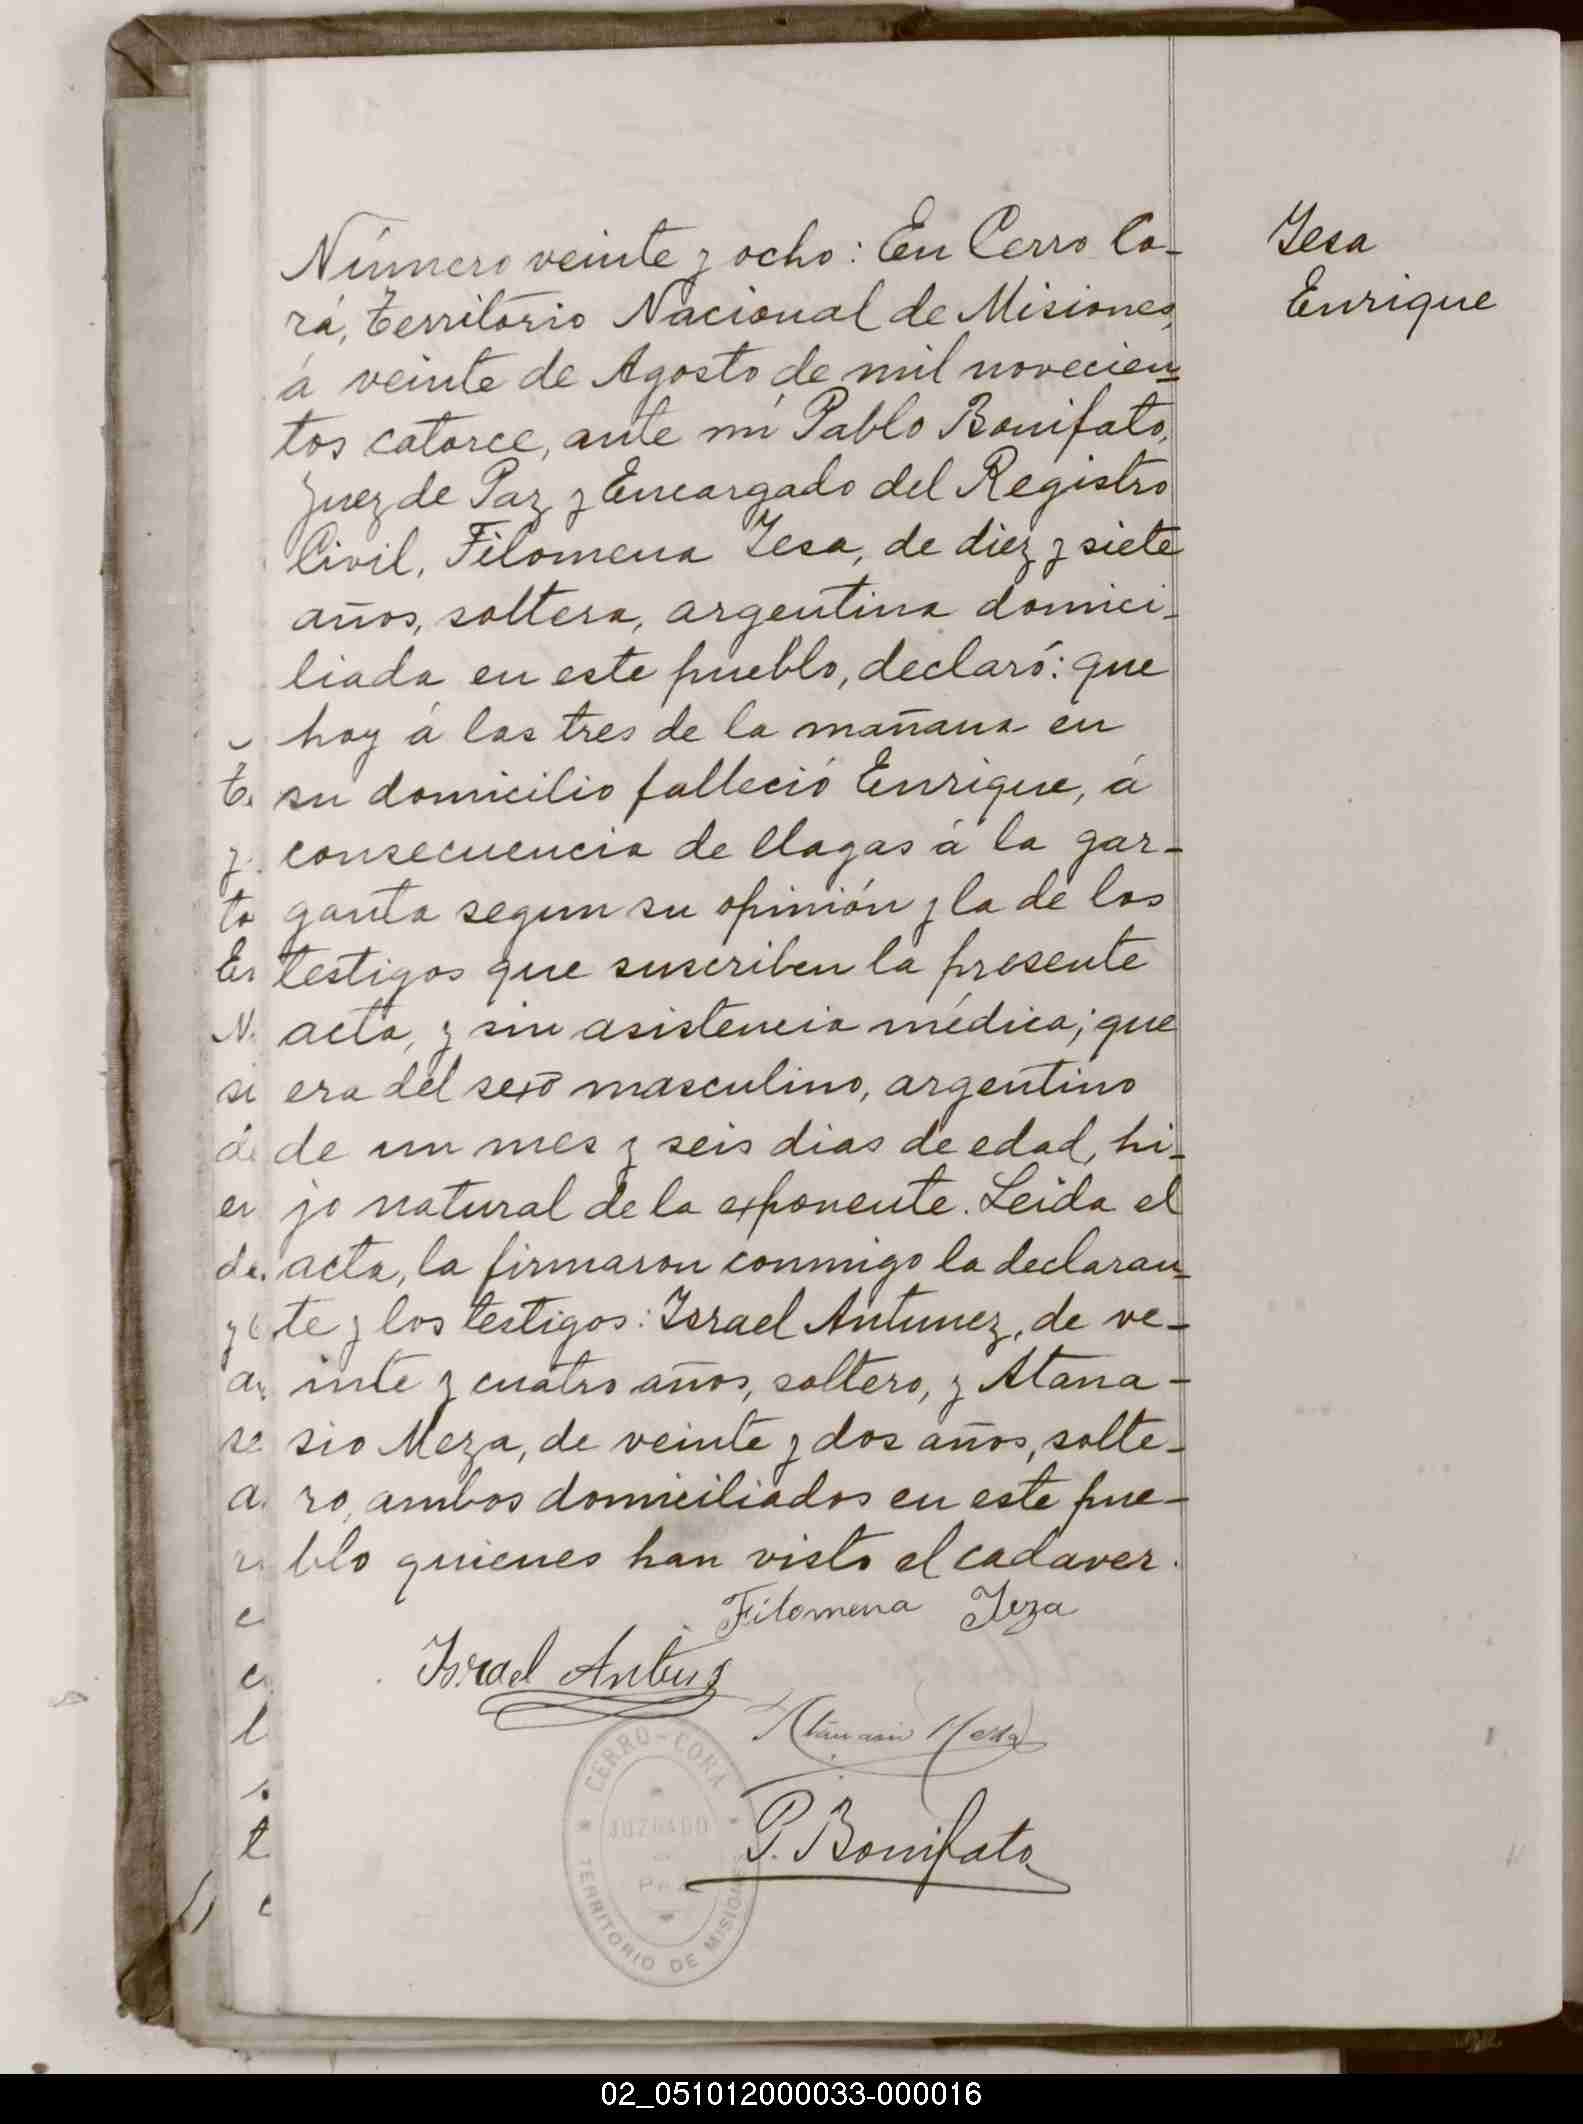 Yesa
Enrique
Número veinte y ocho: En Cerro Co-
rá, territorio Nacional de Misiones,
á veinte de Agosto de mil novecien-
tos catorce, ante mí Pablo Bonifato,
Juez de Paz y Encargado del Registro
Civil, Filomena Yesa, de diez y siete
años, soltera, argentina domici-
liada en este pueblo, declaró: que
hoy á las tres de la mañana en
su domicilio falleció Enrique, á
consecuencia de llagas á la gar-
ganta segun su opinión y la de los
testigos que suscriben la presente
acta, y sin asistencia médica; que
era del sexo masculino, argentino
de un mes y seis dias de edad, hi-
jo natural de la exponente. Leida el
acta, la firmaron conmigo la declaran-
te y los testigos: Israel Antunez, de ve-
inte y cuatro años, soltero, y Atana-
sio Meza, de veinte y dos años, solte-
ro, ambos domiciliados en este pue-
blo quienes han visto el cadaver.
Filomena Yeza
Israel
P. Bonifato
CERRO-CORA
JUZGADO
DE
PAZ
TERRITORIO DE MISIONES
02_051012000033-000016